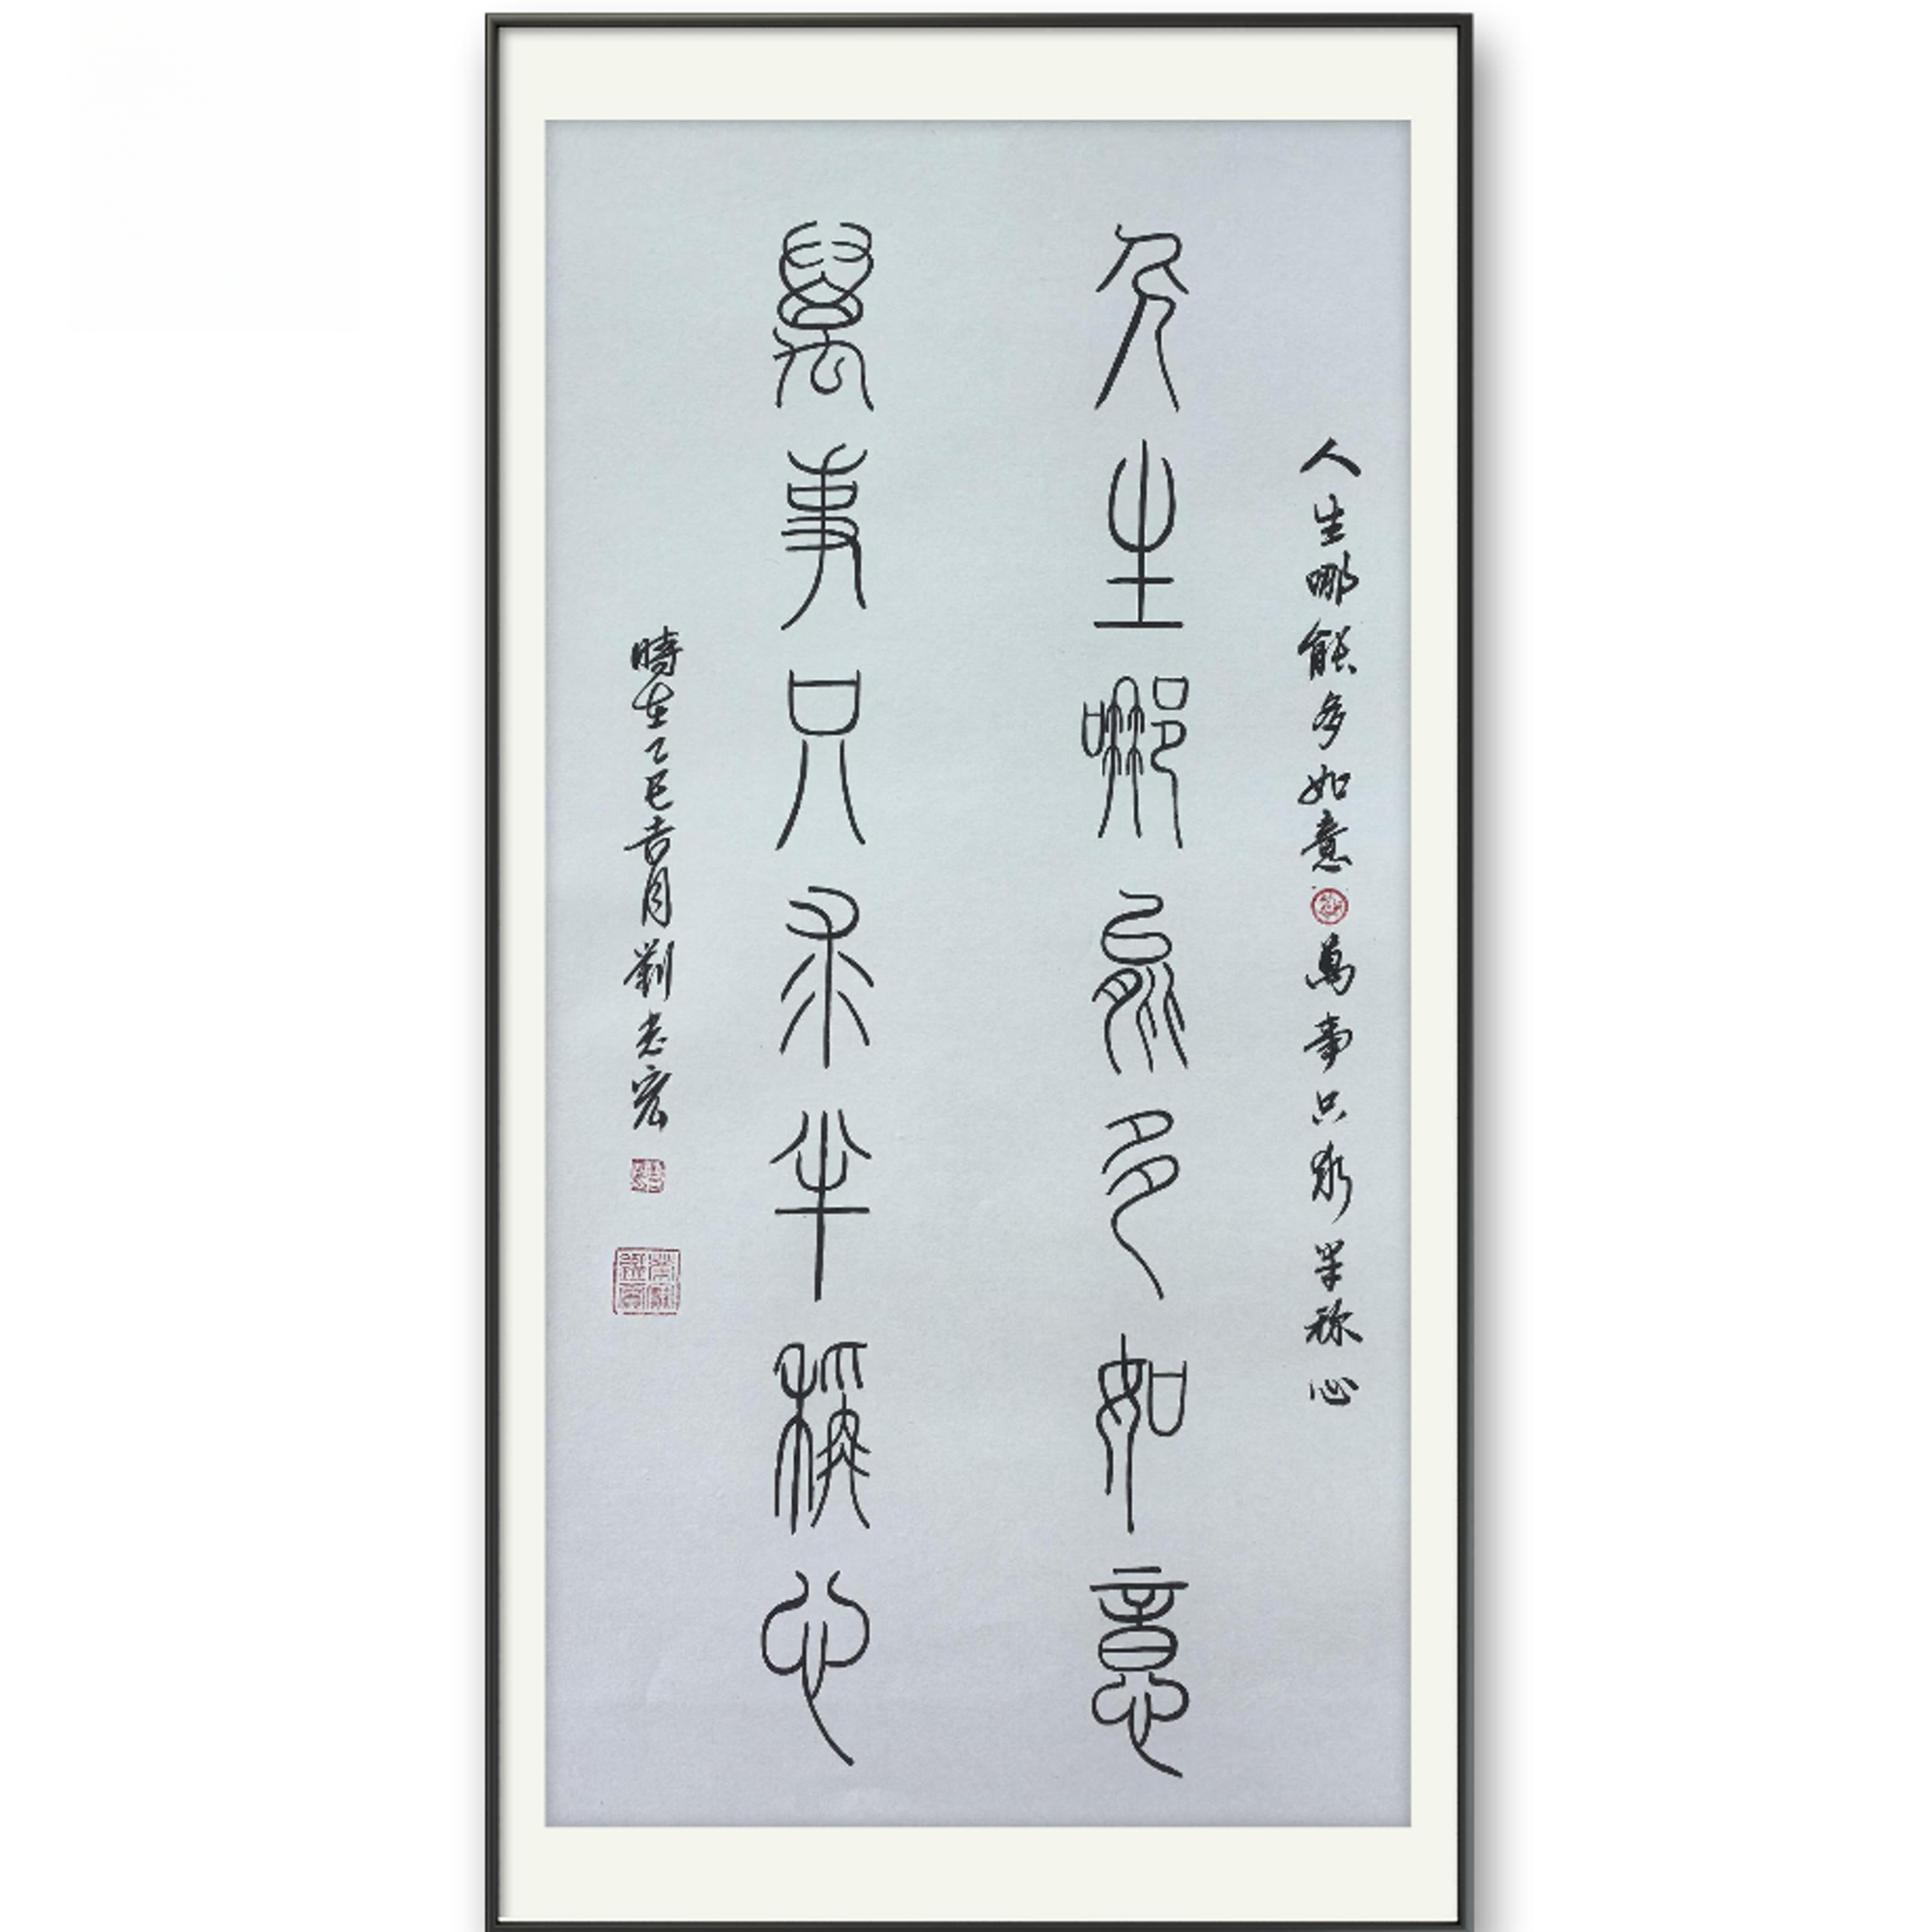 人生哪能多如意萬事只求半称心
人生哪能多如意
萬事只求半稱心
時在乙巳吉月劉志宏